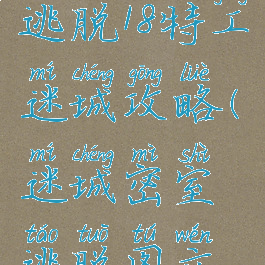 逃脱18特工
mí chéng gōng lüè
迷城攻略(
mí chéng mì shì
迷城密室
táo tuō tú wén
逃脱图文